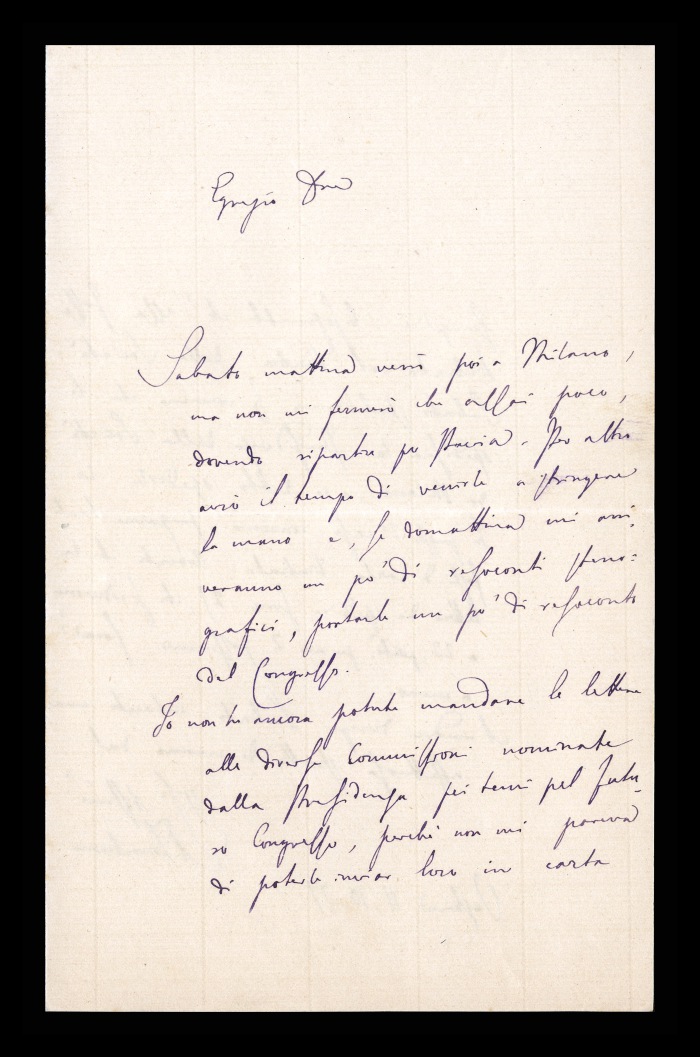 Egregio Dre
Sabato mattina verrò poi a Milano,
ma non mi fermerò che assai poco,
dovendo ripartire per Pavia. Per altro
avrò il tempo di venirle a stringere
la mano e, se domattina mi arri-
veranno un po' di resoconti steno-
grafici, portarle un po' di resoconto
del Congresso.
Io non ho ancora potuto mandare le lettere
alle diverse Commissioni nominate
dalla Presidenza pei temi pel futu-
ro Congresso, perchè non mi pareva
di poterle inviar loro in carta